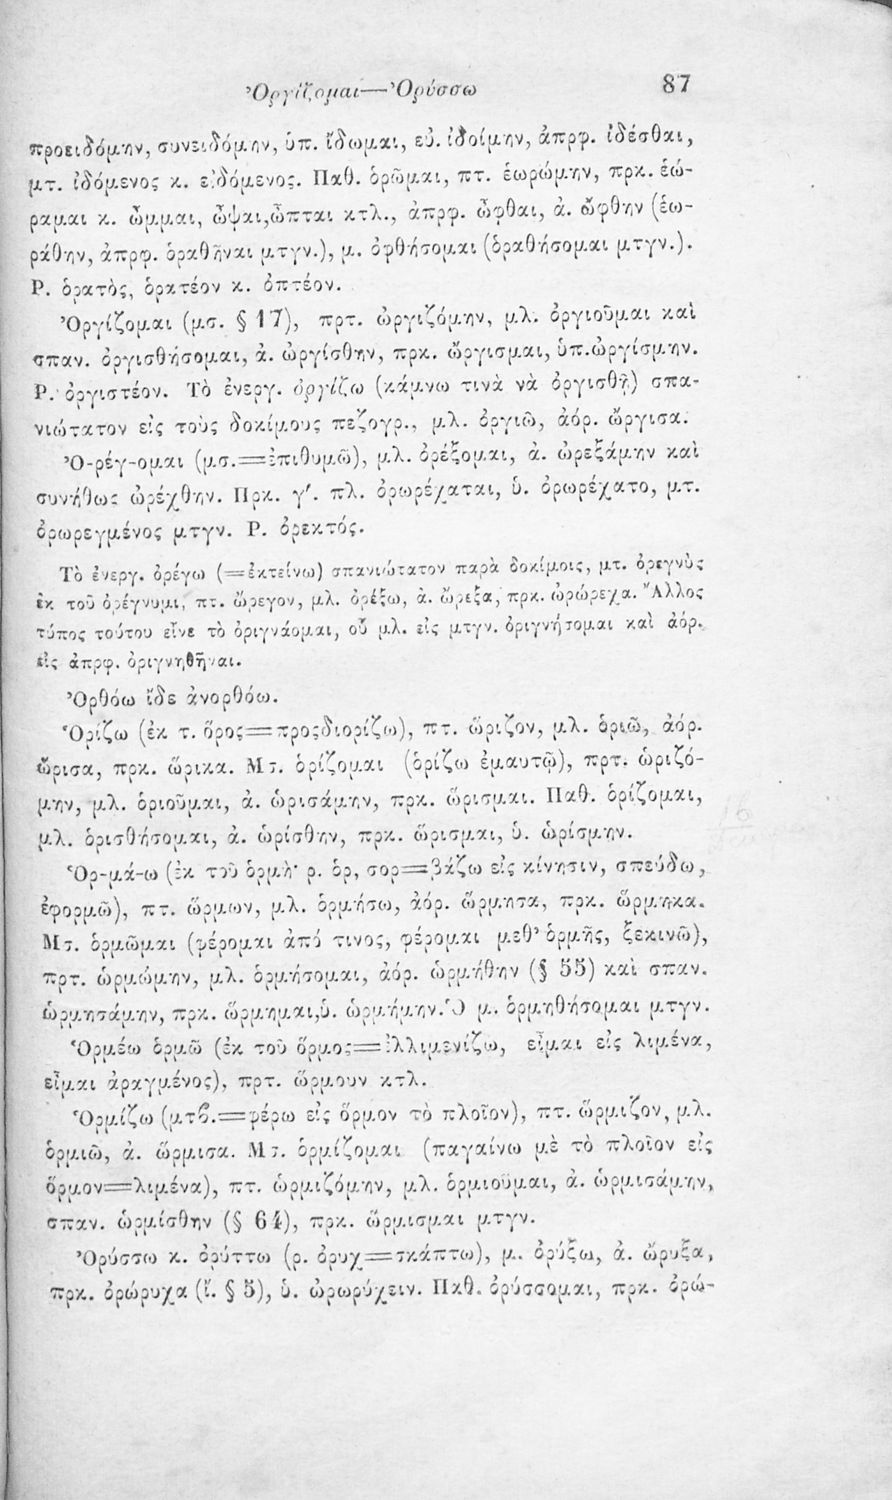 Ὀργίζομαι—Ὀρύσσω 87
προειδόμην, συνειδόμην, ὑπ. ἴδωμαι, εὐ. ἰδοίμην, ἀπρφ. ἰδέσθαι,
μτ. ἰδόμενος κ. εἰδόμενος. Παθ. ὁρῶμαι, πτ. ἑωρώμην, πρκ. ἑώ-
ραμαι κ. ὦμμαι, ὦψαι, ὦπται κτλ., ἀπρφ. ὦφθαι, ἀ. ὤφθην (ἑω-
ράθην, ἀπρφ. ὁραθῆναι μτγν.), μ. ὀφθήσομαι (ὁραθήσομαι μτγν.).
Ρ. ὁρατὸς, ὁρατέον κ. ὀπτέον.
Ὀργίζομαι (μσ. § 17), πρτ. ὠργιζόμην, μλ. ὀργιοῦμαι καὶ
σπαν. ὀργισθήσομαι, ἀ. ὠργίσθην, πρκ. ὤργισμαι, ὑπ. ὠργίσμην.
Ρ. ὀργιστέον. Τὸ ἐνεργ. ὀργίζω (κάμνω τινὰ νὰ ὀργισθῇ) σπα-
νιώτατον εἰς τοὺς δοκίμους πεζογρ., μλ. ὀργιῶ, ἀόρ. ὤργισα.
Ὀ-ρέγ-ομαι (μσ.=ἐπιθυμῶ), μλ. ὀρέξομαι, ἀ. ὠρεξάμην καὶ
συνήθως ὠρέχθην. Πρκ. γ΄. πλ. ὀρωρέχαται, ὑ. ὀρωρέχατο, μτ.
ὀρωρεγμένος μτγν. Ρ. ὀρεκτός.
Τὸ ἐνεργ. ὀρέγω (=ἐκτείνω) σπανιώτατον παρὰ δοκίμοις, μτ. ὀρεγνὺς
ἐκ τοῦ ὀρέγνυμι, πτ. ὤρεγον, μλ. ὀρέξω, ἀ. ὤρεξα, πρκ. ὠρώρεχα. Ἄλλος
τύπος τούτου εἶνε τὸ ὀριγνάομαι, οὗ μλ. εἰς μτγν. ὀριγνήσομαι καὶ ἀόρ.
εἰς ἀπρφ. ὀριγνηθῆναι.
Ὀρθόω ἴδε ἀνορθόω.
Ὁρίζω (ἐκ τ. ὅρος=προςδιορίζω), πτ. ὥριζον, μλ. ὁριῶ, ἀόρ.
ὥρισα, πρκ. ὥρικα. Μτ. ὁρίζομαι (ὁρίζω ἐμαυτῷ), πρτ. ὡριζό-
μην, μλ. ὁριοῦμαι, ἀ. ὡρισάμην, πρκ. ὥρισμαι. Παθ. ὁρίζομαι,
μλ. ὁρισθήσομαι, ἀ. ὡρίσθην, πρκ. ὥρισμαι, ὑ. ὡρίσμην.
Ὁρ-μά-ω (ἐκ τοῦ ὁρμὴ· ρ. ὁρ, σορ=βάζω εἰς κίνησιν, σπεύδω,
ἐφορμῶ), πτ. ὥρμων, μλ. ὁρμήσω, ἀόρ. ὥρμησα, πρκ. ὥρμηκα.
Μτ. ὁρμῶμαι (φέρομαι ἀπό τινος, φέρομαι μεθ' ὁρμῆς, ξεκινῶ),
πρτ. ὡρμώμην, μλ. ὁρμήσομαι, ἀόρ. ὡρμήθην (§ 55) καὶ σπαν.
ὡρμησάμην, πρκ. ὥρμημαι, ὑ. ὡρμήμην. Ὁ μ. ὁρμηθήσομαι μτγν.
Ὁρμέω ὁρμῶ (ἐκ τοῦ ὅρμος=ἐλλιμενίζω, εἶμαι εἰς λιμένα,
εἶμαι ἀραγμένος), πρτ. ὥρμουν κτλ.
Ὁρμίζω (μτβ.=φέρω εἰς ὅρμον τὸ πλοῖον), πτ. ὥρμιζον, μλ.
ὁρμιῶ, ἀ. ὥρμισα. Μτ. ὁρμίζομαι (παγαίνω μὲ τὸ πλοῖον εἰς
ὅρμον=λιμένα), πτ. ὡρμιζόμην, μλ. ὁρμιοῦμαι, ἀ. ὡρμισάμην,
σπαν. ὡρμίσθην (§ 64), πρκ. ὥρμισμαι μτγν.
Ὀρύσσω κ. ὀρύττω (ρ. ὀρυχ=σκάπτω), μ. ὀρύξω, ἀ. ὤρυξα,
πρκ. ὀρώρυχα (ἴ. § 5), ὑ. ὠρωρύχειν. Παθ. ὀρύσσομαι, πρκ. ὀρώ-